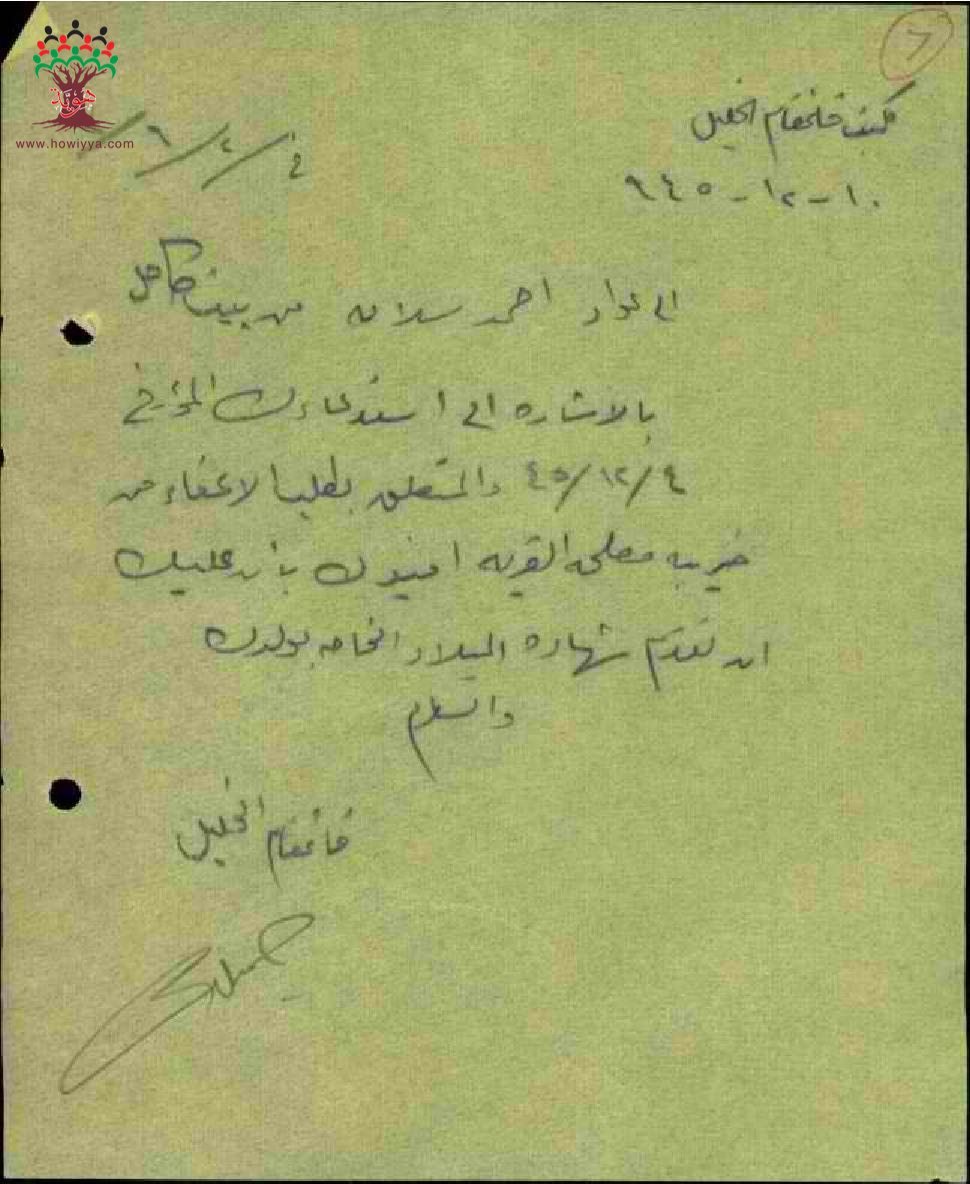 ٧
هوية
www.howiyya.com
مكتب قائمقام الخليل
ع/٢/٦/
١٠-١٢-٩٤٥
الى عواد احمد سلامه من بيت كاحل
بالاشاره الى استدعاءك المؤرخ
٤/١٢/٤٥ والمتعلق بطلب الاعفاء من
ضريبه مصلحه القريه افيدك بأن عليك
ان تقدم شهادة الميلاد الخاصه بولدك
والسلام
قائمقام الخليل